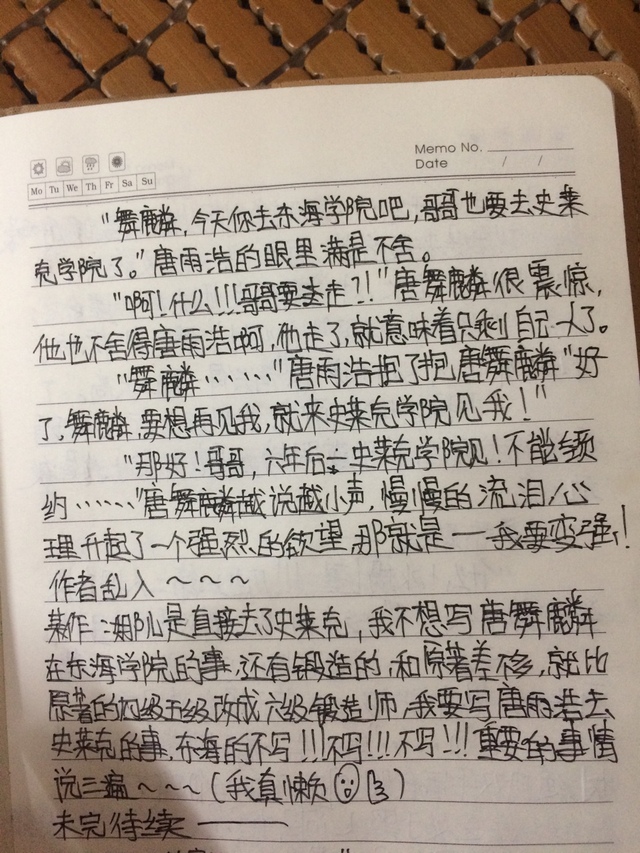 Memo No.
Date / /
Mo Tu We Th Fr Sa Su
“舞麟,今天你去东海学院吧,哥哥也要去史莱
克学院了。”唐雨浩的眼里满是不舍。
“啊!什么!!!哥哥要走?!”唐舞麟很震惊,
他也不舍得唐雨浩啊,他走了,就意味着只剩自己一人了。
“舞麟……”唐雨浩抱了抱唐舞麟“好
了,舞麟,要想再见我,就来史莱克学院见我!”
“那好!哥哥,六年后 史莱克学院见!不能
约……”唐舞麟越说越小声,慢慢的流泪,心
理升起了一个强烈的欲望,那就是——我要变强!
作者乱入~~~
某作: 是直接去了史莱克,我不想写唐舞麟
在东海学院的事,还有锻造的,和原著差不多,就比
原著的四级五级改成六级锻造师,我要写唐雨浩去
史莱克的事,东海的不写!!!不写!!!不写!!!重要的事情
说三遍~~~(我真懒)
未完待续——